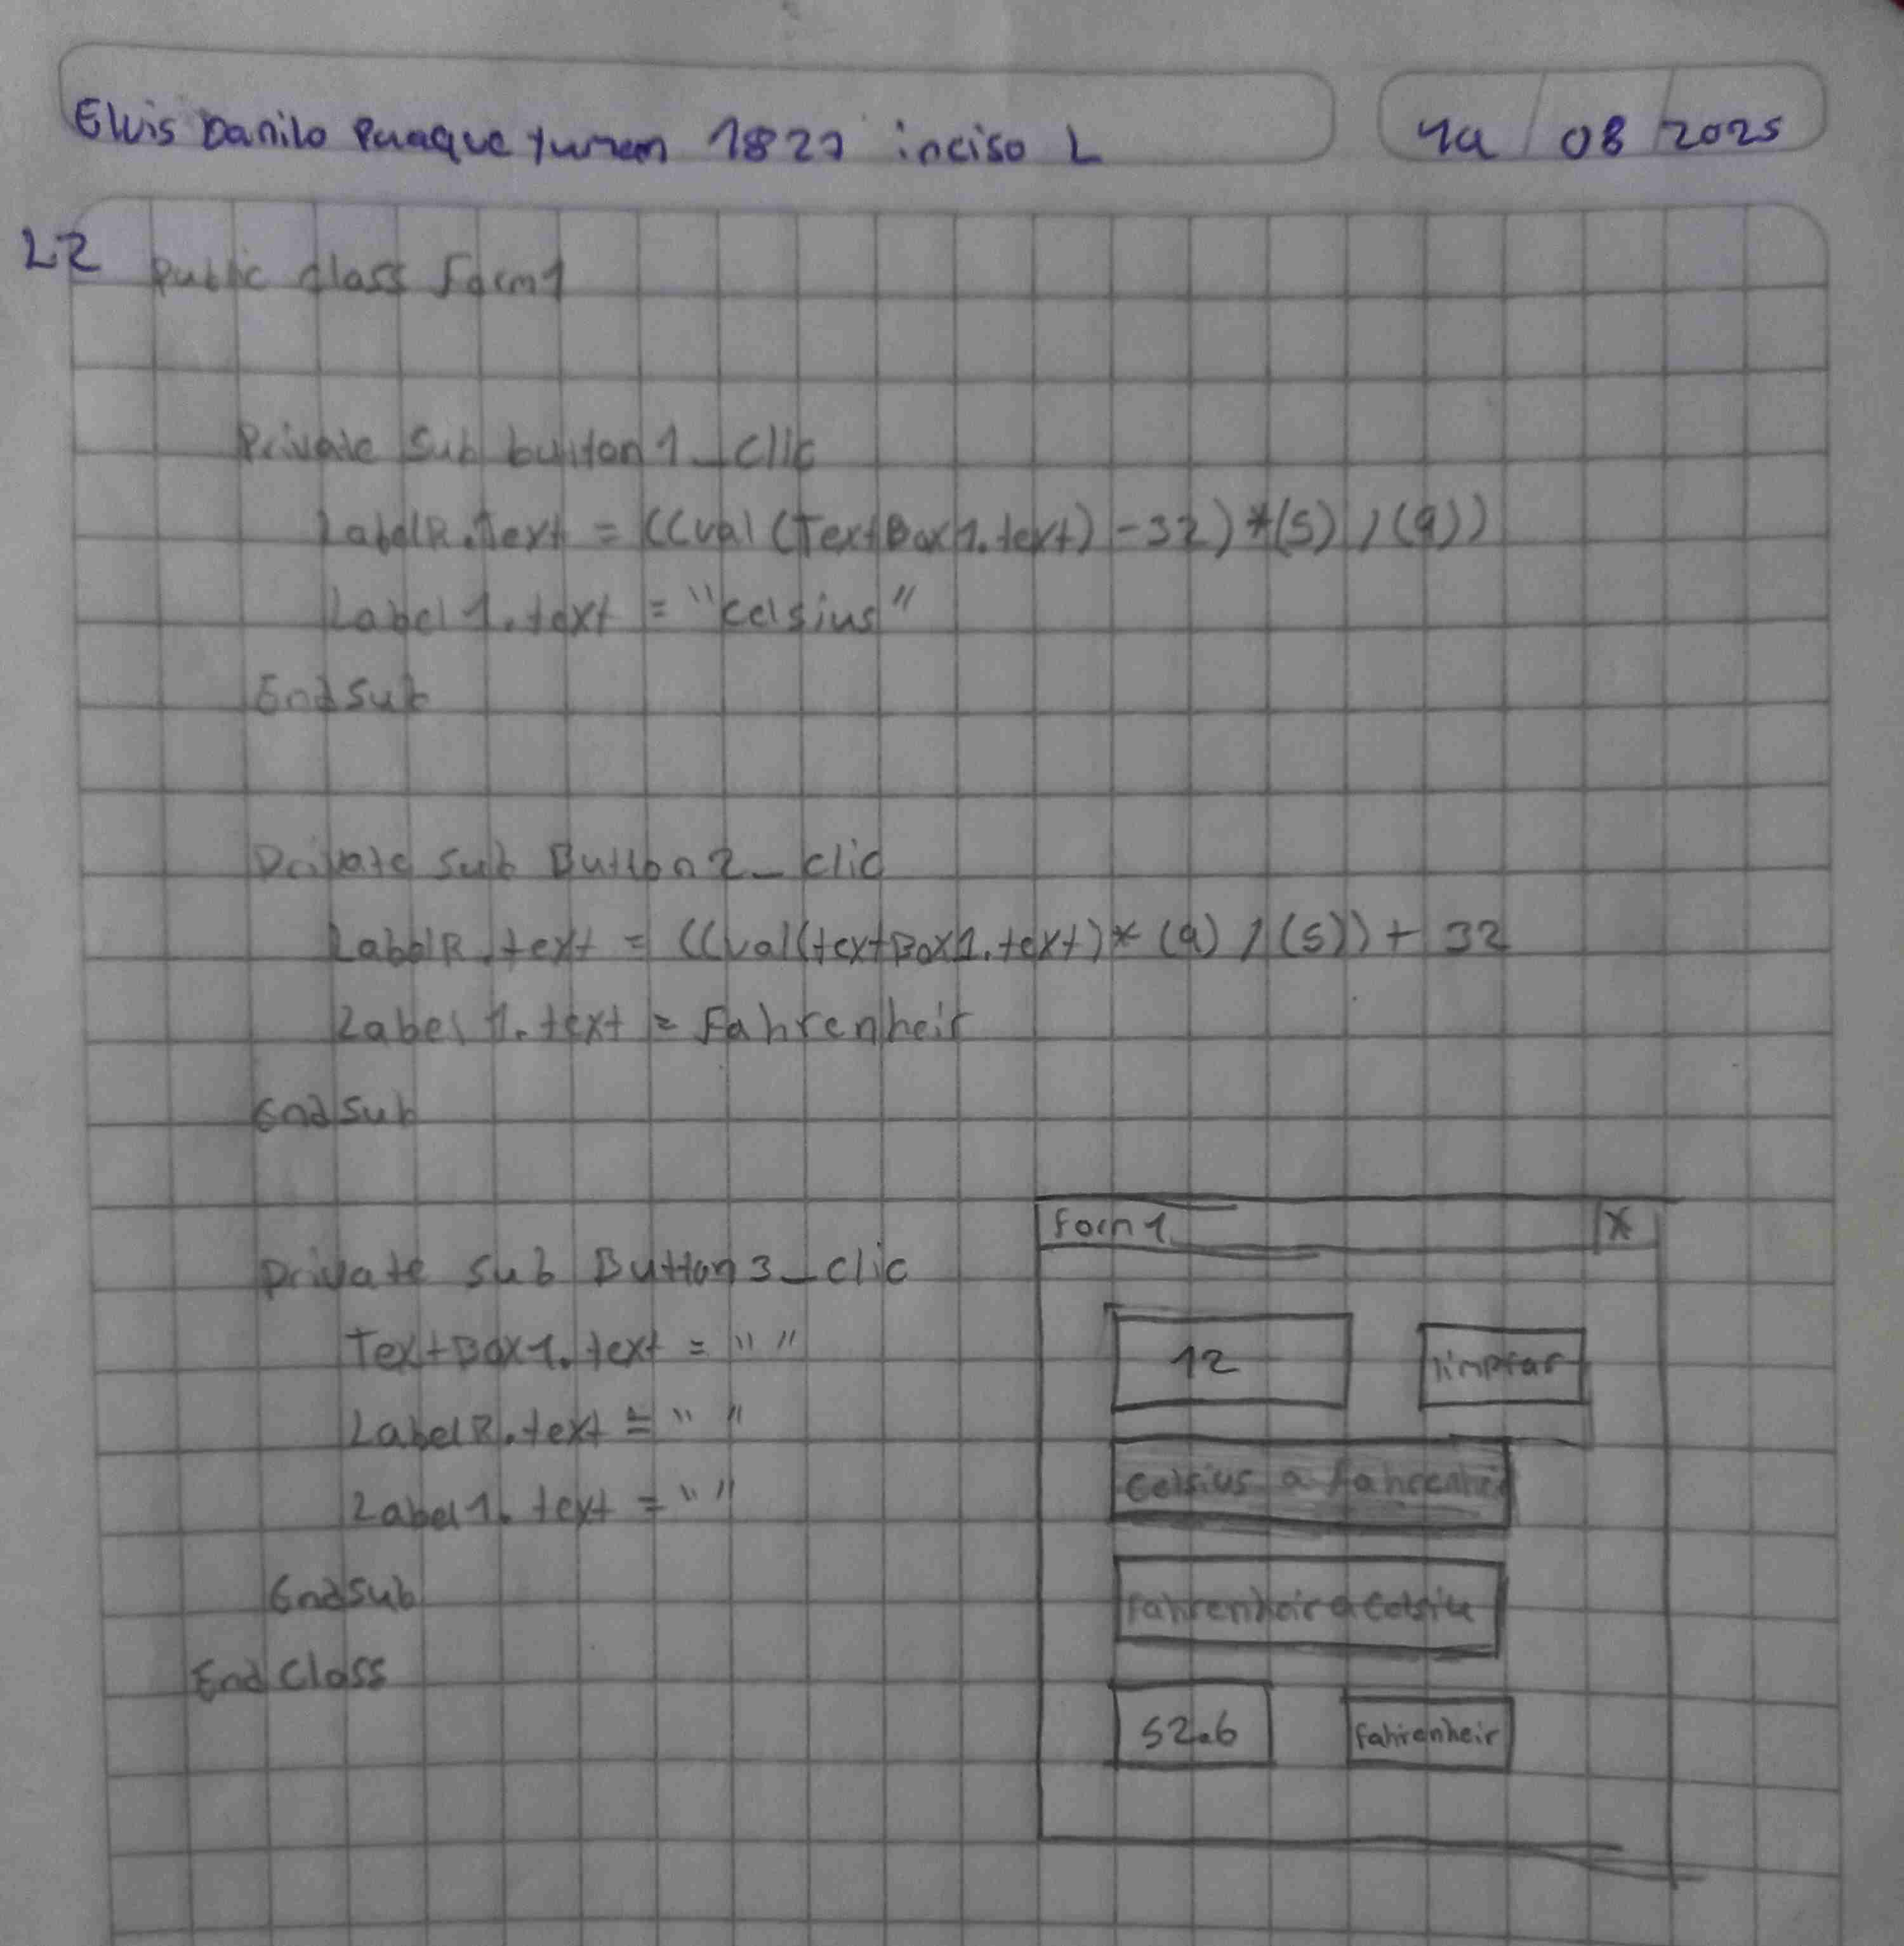 Elvis Danilo 1827 inciso L
14 / 08 / 2025
L2 public class Form1
Private Sub button1_clic
LabelR.text = ((val(TextBox1.text) -32) *(5) / (9))
Label1.text = "celsius"
End Sub
Private Sub Button2_clic
LabelR.text = ((val(textBox1.text)* (9) / (5)) + 32
Label1.text = Fahrenheir
End Sub
private Sub Button3_clic
TextBox1.text = " "
LabelR.text = " "
Label1.text = " "
End Sub
End Class
Form1 X
12 limpiar
Celsius a
Fahrenheir a
52.6 Fahrenheir